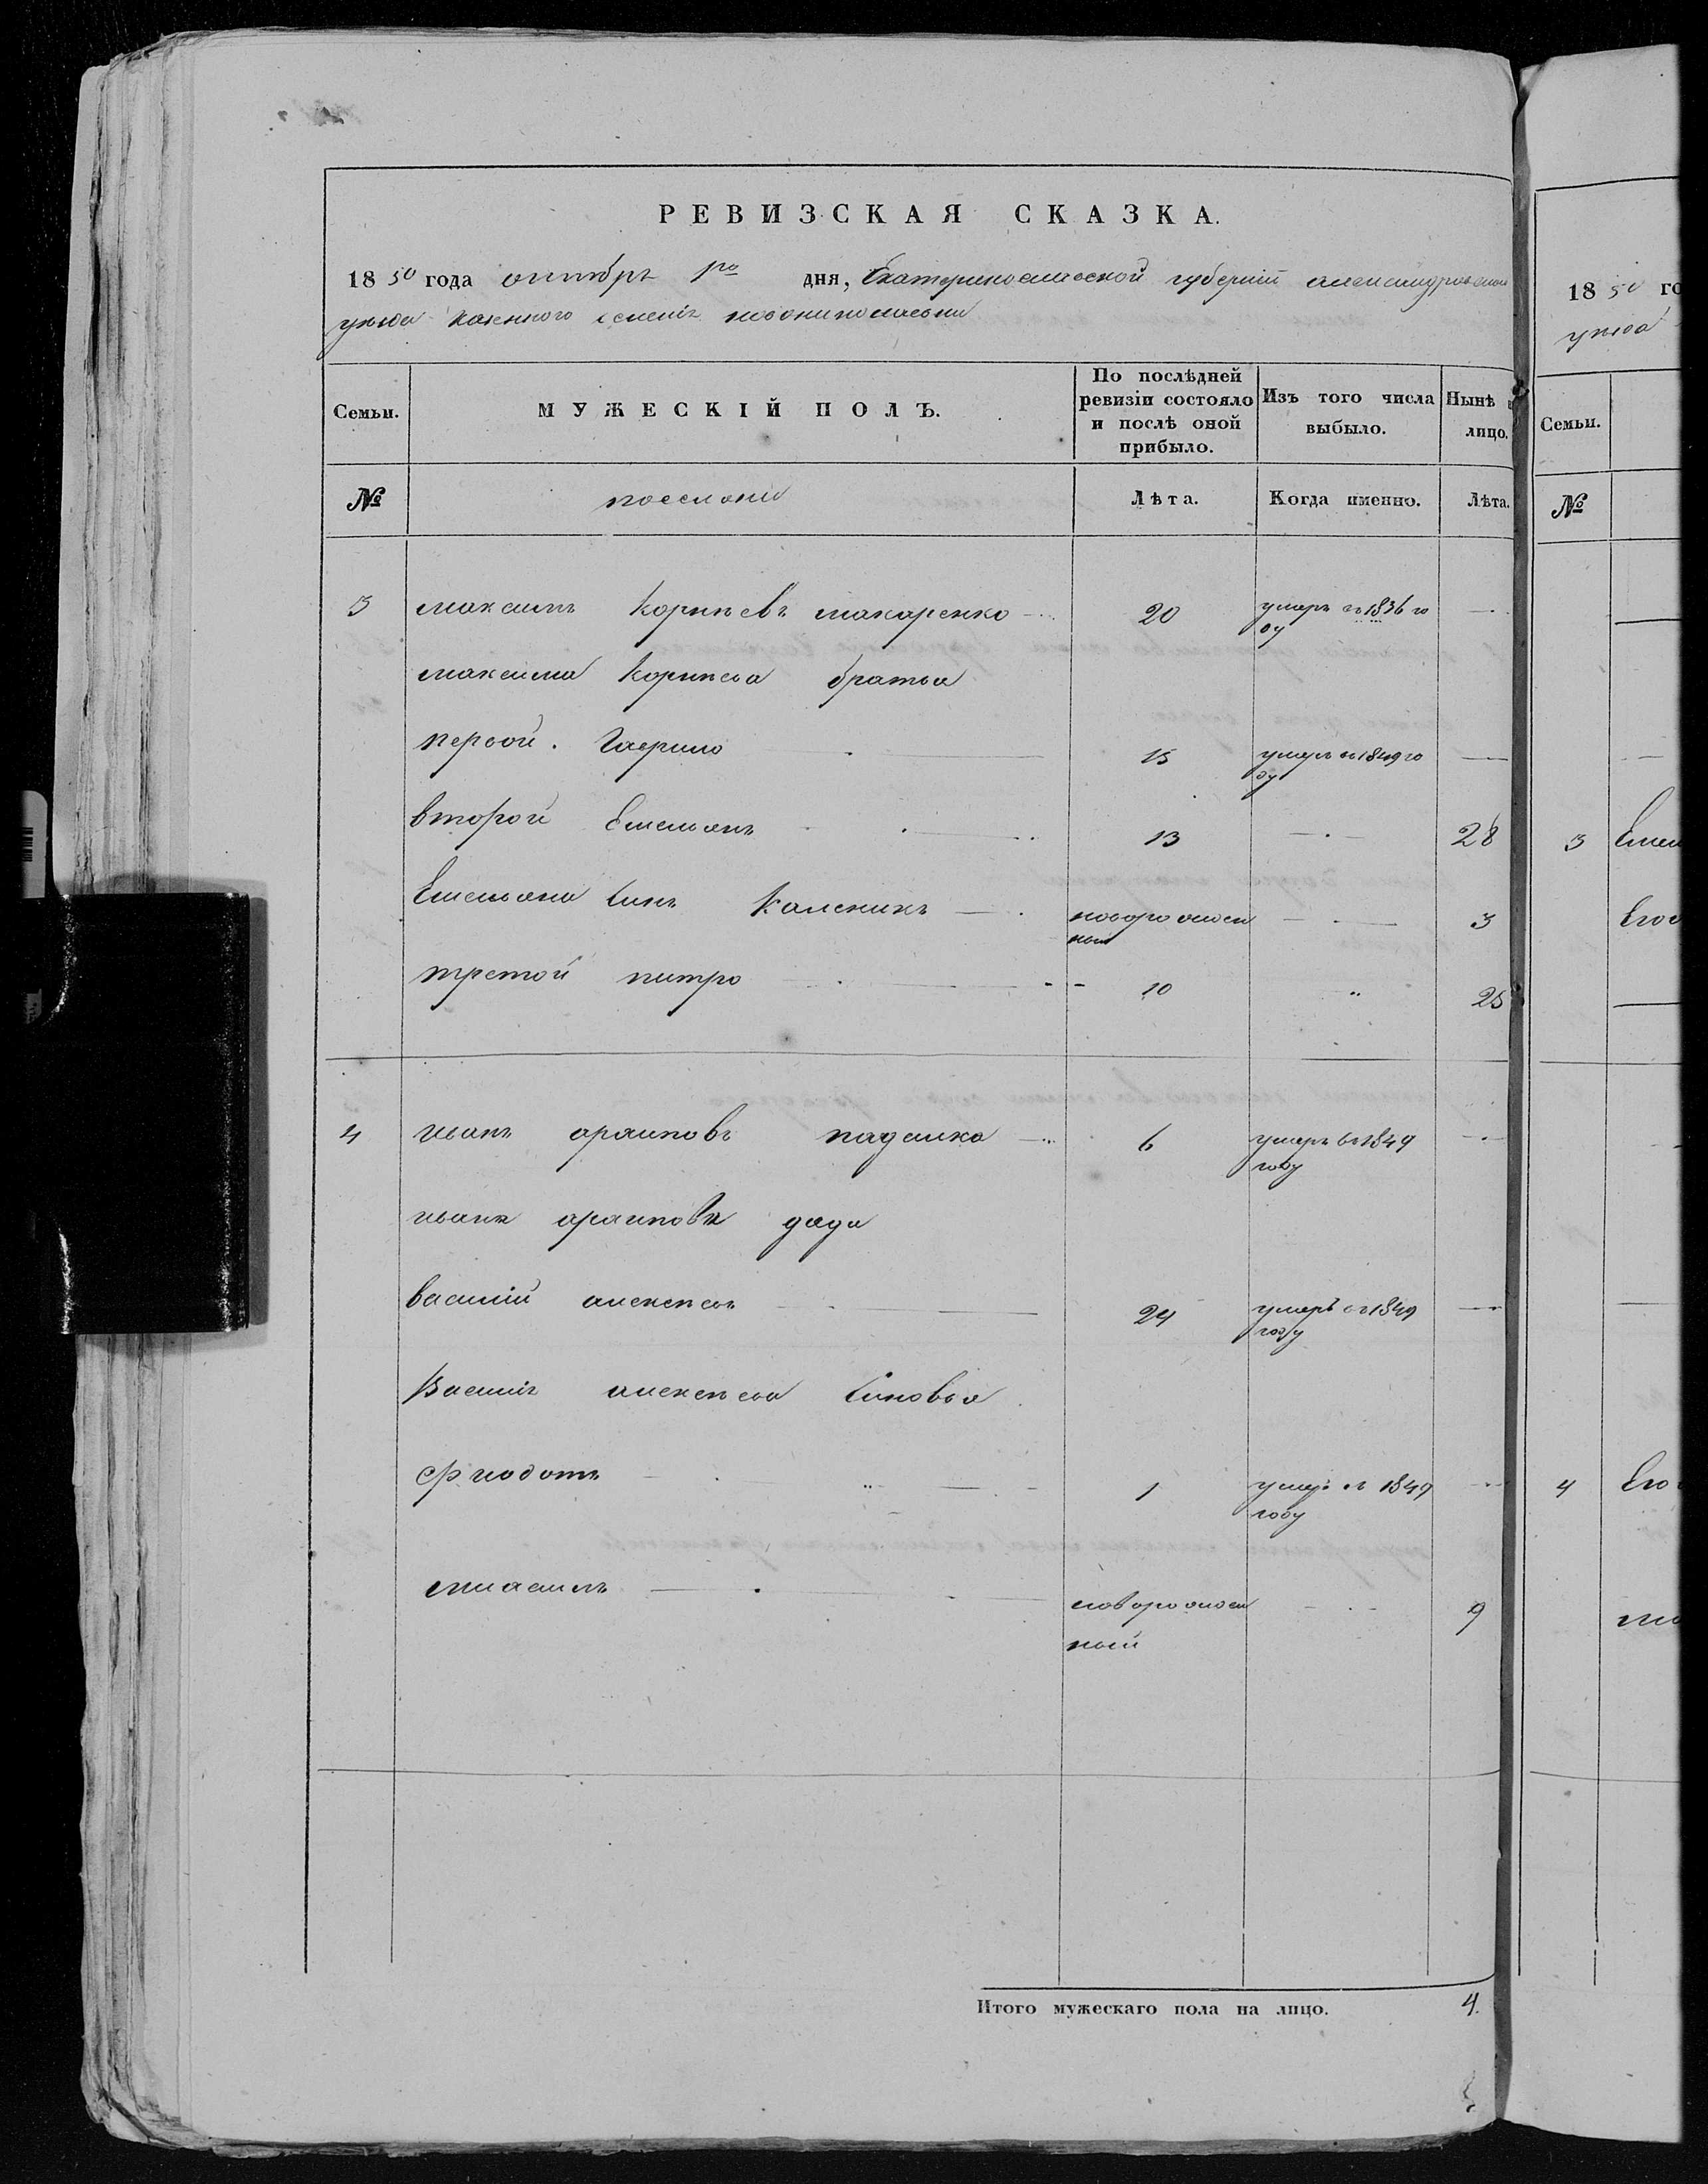 РЕВИЗСКАЯ СКАЗКА.
1850 года октября 1го дня, Екатеринославской губернии александровскаго
уезда казенного селения новониколаевки
Семьи. МУЖЕСКІЙ ПОЛЪ. По послѣдней ревизіи состояло и послѣ оной прибыло. Изъ того числа выбыло. Нынѣ лицо.
№ Лѣта. Когда именно. Лѣта.
3 максимъ Корнѣевъ макаренко 20 умеръ въ 1836 го
ду
максима Корнѣева братья
первой. Гаврило 15 умеръ въ 1849 го
ду
второй Емельянъ 13 28
Емельяна Синъ Каленикъ новорожден 3
ный
третой питро 10 25
4 иванъ 6 умеръ въ 1849
году
ивана дядя
василий алексеевъ 24 умеръ въ 1849
году
Василия алексеева Синовья
Фиодотъ 1 умеръ въ 1849
году
новорожден 9
ный
Итого мужескаго пола на лицо. 4.
1850 го
уезда
Семьи.
№
3 Емел
Его
4 Его